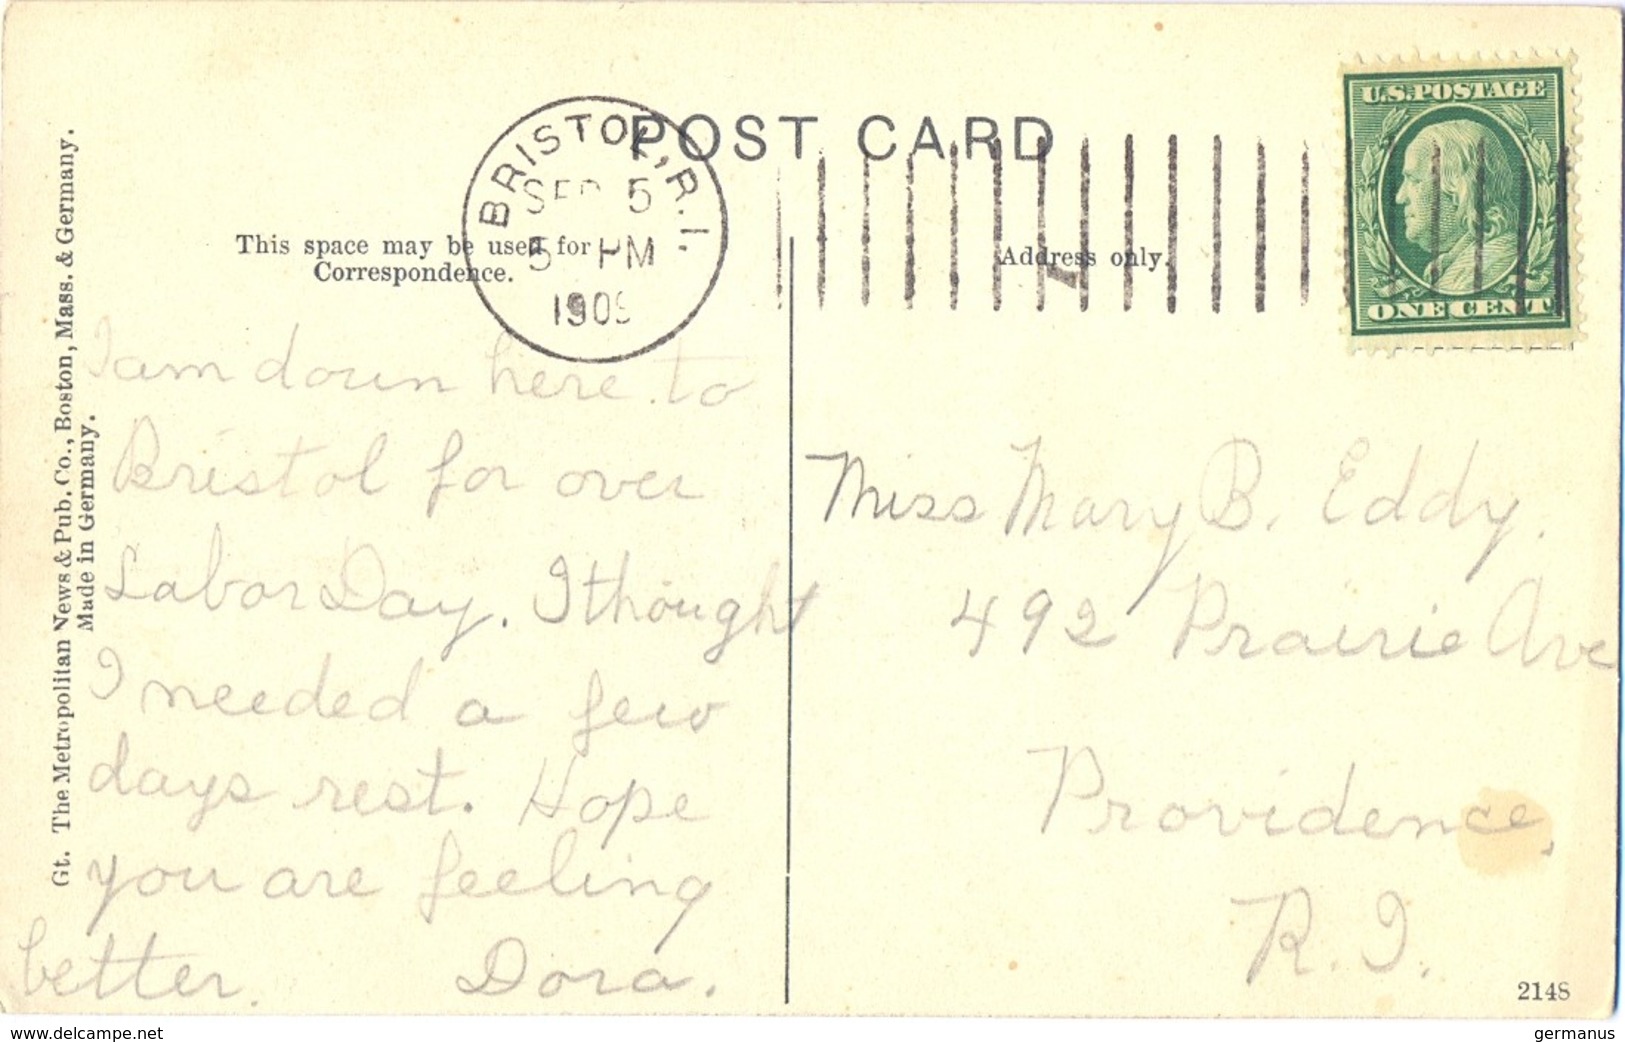 POST CARD
BRISTOL, R.I.
SEP 5
5 PM
1909
U.S. POSTAGE
ONE CENT
This space may be used for
Correspondence.
Address only.
Gt. The Metropolitan News & Pub. Co., Boston, Mass. & Germany.
Made in Germany.
I am down here to
Bristol for over
Labor Day. I thought
I needed a few
days rest. Hope
you are feeling
better. Dora.
Miss Mary B. Eddy.
492 Prairie Ave
Providence,
R. I.
2148
www.delcampe.net
germanus